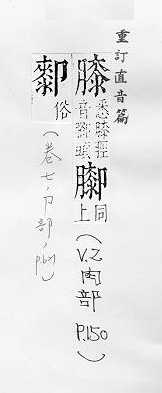 重訂直音篇
膝 悉膝脛音頭 同上（V.2 肉部 P.150）
厀 俗（卷七，卩部，